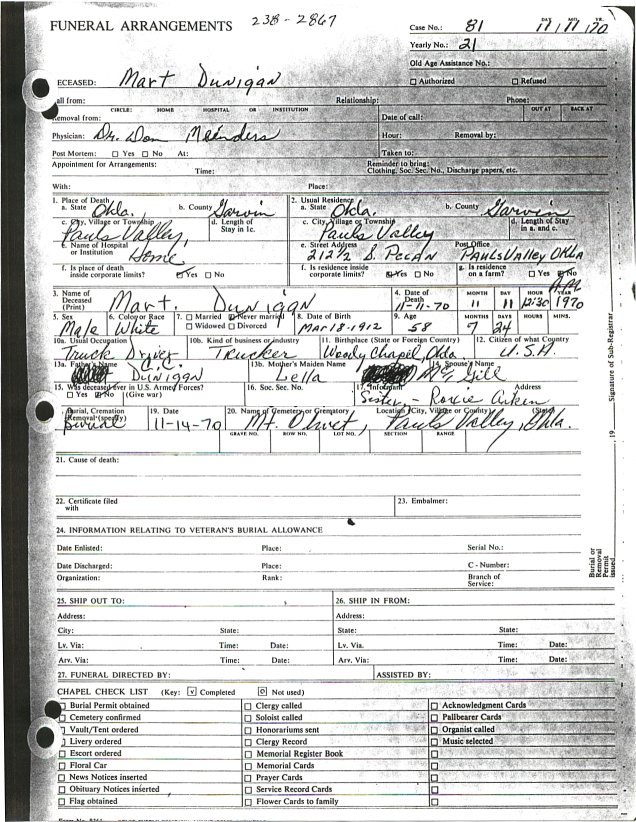 FUNERAL ARRANGEMENTS 238-2867
DAY MO. YR.
Case No.: 81 11/11/70
Yearly No.: 21
Old Age Assistance No.:
ECEASED: Mart Dunigan ☐ Authorized ☐ Refused
all from: Relationship: Phone:
CIRCLE: HOME HOSPITAL OR INSTITUTION OUT AT BACK AT
Removal from: Date of call:
Physician: Dr. Don Meinders Hour: Removal by:
Post Mortem: ☐ Yes ☐ No At: Taken to:
Appointment for Arrangements: Time: Reminder to bring: Clothing, Soc. Sec. No., Discharge papers, etc.
With: Place:
1. Place of Death a. State Okla. b. County Garvin 2. Usual Residence a. State Okla. b. County Garvin
c. City, Village or Township Pauls Valley, d. Length of Stay in 1c. c. City, Village or Township Pauls Valley d. Length of Stay in a. and c.
e. Name of Hospital or Institution Home e. Street Address 212½ S. Pecan Post Office Pauls Valley Okla
f. Is place of death inside corporate limits? ☑ Yes ☐ No f. Is residence inside corporate limits? ☑ Yes ☐ No g. Is residence on a farm? ☐ Yes ☑ No
3. Name of Deceased (Print) Mart. Dunigan 4. Date of Death 11-11-70 MONTH 11 DAY 11 HOUR 12:30 AM YEAR 1970
5. Sex Male 6. Color or Race White 7. ☐ Married ☑ Never married ☐ Widowed ☐ Divorced 8. Date of Birth Mar 18-1912 9. Age 58 MONTHS 7 DAYS 24 HOURS MINS.
10a. Usual Occupation Truck Driver 10b. Kind of business or industry Trucker 11. Birthplace (State or Foreign Country) Woody Chapel, Okla. 12. Citizen of what Country U.S.A.
13a. Father's Name C.C. Dunigan 13b. Mother's Maiden Name Lella McGill 14. Spouse's Name
15. Was deceased ever in U.S. Armed Forces? ☐ Yes ☑ No (Give war) 16. Soc. Sec. No. 17. Informant Sister - Roxie Aiken Address
Burial, Cremation Removal (specify) Burial 19. Date 11-14-70 20. Name of Cemetery or Crematory Mt. Olivet, Location (City, Village or County) Pauls Valley, (State) Okla.
GRAVE NO. ROW NO. LOT NO. SECTION RANGE
21. Cause of death:
22. Certificate filed with 23. Embalmer:
24. INFORMATION RELATING TO VETERAN'S BURIAL ALLOWANCE
Date Enlisted: Place: Serial No.:
Date Discharged: Place: C - Number:
Organization: Rank: Branch of Service:
25. SHIP OUT TO: 26. SHIP IN FROM:
Address: Address:
City: State: State: State:
Lv. Via: Time: Date: Lv. Via. Time: Date:
Arv. Via: Time: Date: Arv. Via: Time: Date:
27. FUNERAL DIRECTED BY: ASSISTED BY:
CHAPEL CHECK LIST (Key: ☑ Completed ☐ Not used)
☐ Burial Permit obtained ☐ Clergy called ☐ Acknowledgment Cards
☐ Cemetery confirmed ☐ Soloist called ☐ Pallbearer Cards
Vault/Tent ordered ☐ Honorariums sent ☐ Organist called
Livery ordered ☐ Clergy Record ☐ Music selected
☐ Escort ordered ☐ Memorial Register Book ☐
☐ Floral Car ☐ Memorial Cards ☐
☐ News Notices inserted ☐ Prayer Cards ☐
☐ Obituary Notices inserted ☐ Service Record Cards ☐
☐ Flag obtained ☐ Flower Cards to family ☐
Burial or Removal Permit issued 19 Signature of Sub-Registrar